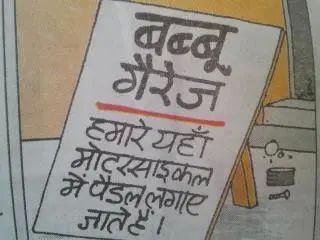 बब्बू
गैरेज
हमारे यहाँ
मोटरसाइकल
में पैडल लगाए
जाते हैं।